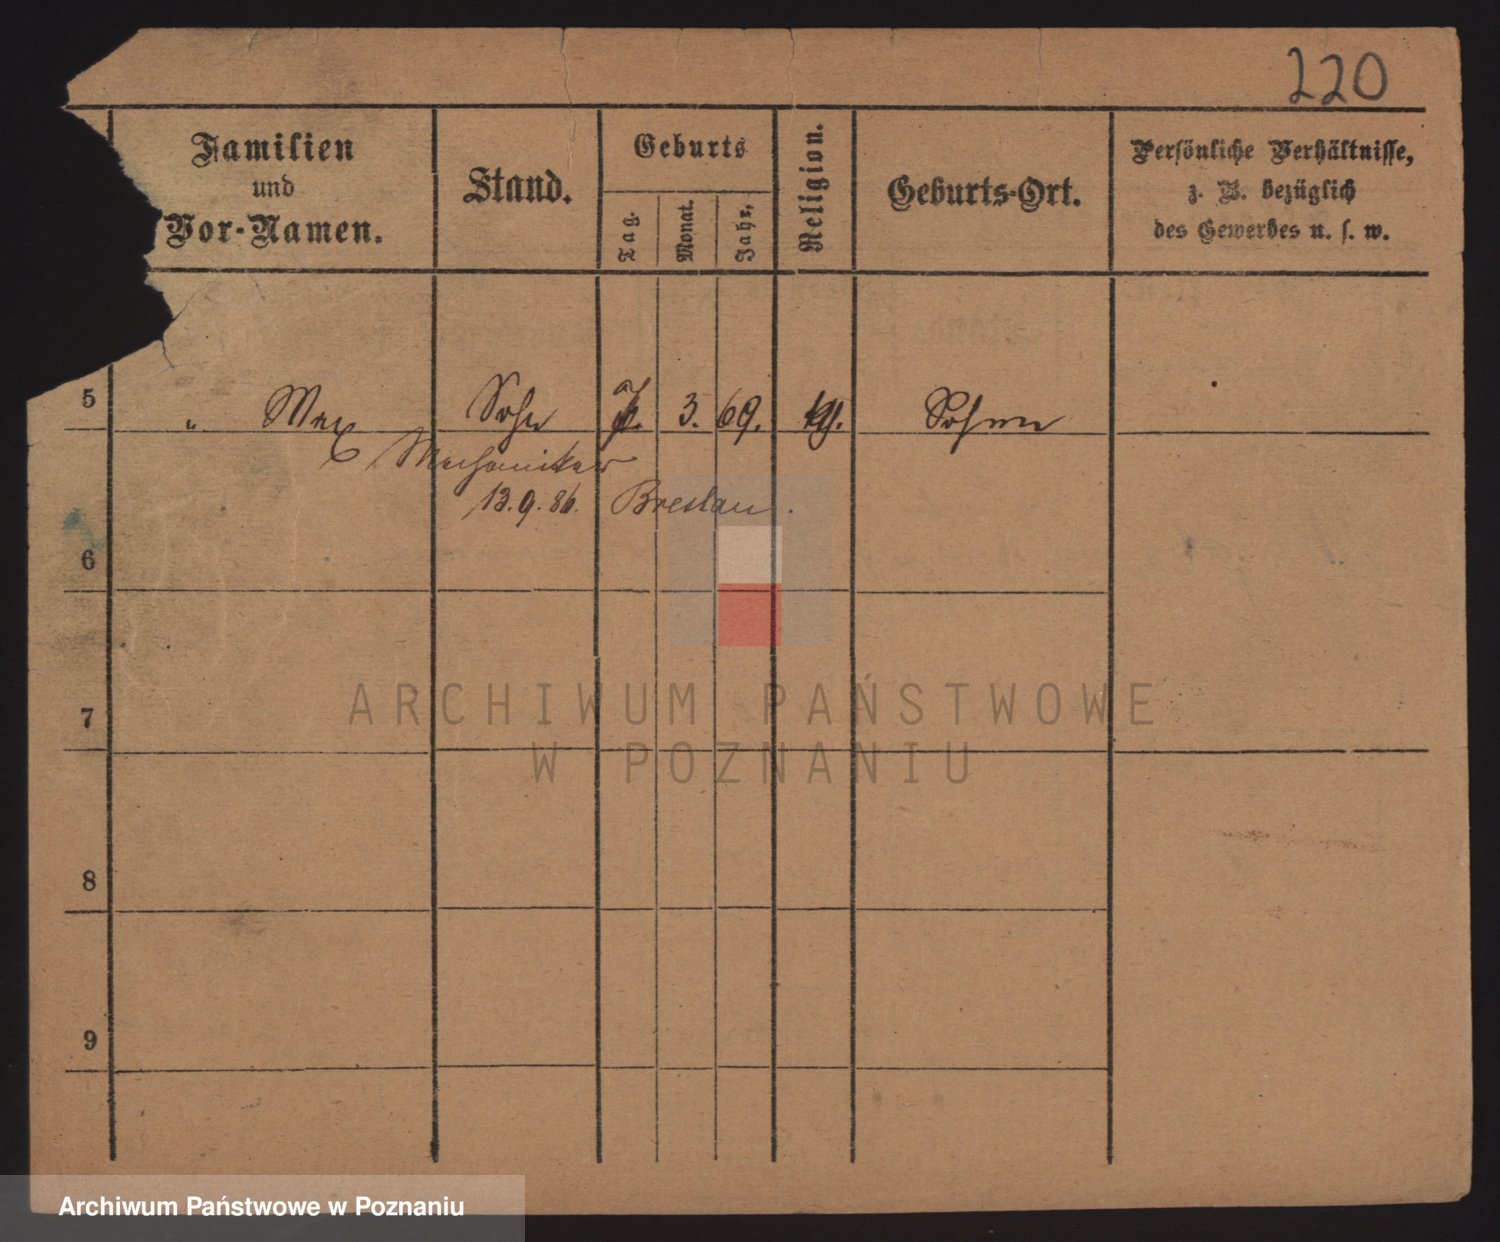 220
Familien
und
Vor-Namen.
Stand.
Geburts
Tag.
Monat.
Jahr.
Religion.
Geburts-Ort.
Persönliche Verhältnisse,
z. B. bezüglich
des Gewerbes u. s. w.
5
" Max Sohn 3. 69.
Mechaniker
13. 9. 86. Breslau.
6
7
8
9
ARCHIWUM PAŃSTWOWE
W POZNANIU
Archiwum Państwowe w Poznaniu